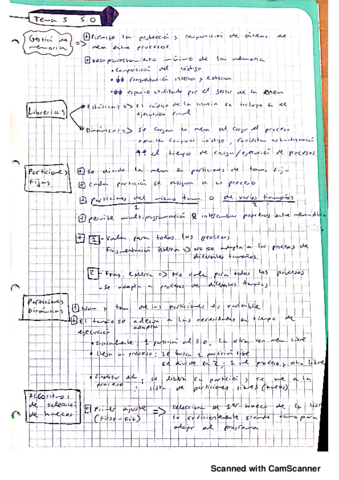 Tema 5 S.O
Gestión de memoria => Permite la protección y compartición de áreas de
mem entre procesos.
Desaprovechamiento mínimo de la memoria
• Compartición del código
fragmentación interna y externa
espacio utilizado por el gestor de la mem
Librerías
Estáticas => El código de la librería se incluye en el
ejecutable final
Dinámicas => Se cargan en mem al cargar el proceso
el tiempo de carga/ejecución de procesos.
Particiones Fijas
Se divide la mem en particiones de tam fijo
Cada partición se asigna a un proceso
Particiones del mismo tam. o de varios tamaños
1 2
permite multiprogramación & intercambiar procesos entre
1 - Valen para todos los procesos
Fragmentación interna => no se adapta a los procesos de
diferentes tamaños.
2 - Frag. externa => No valen para todos los procesos
- Se adapta a procesos de diferentes tamaños.
Particiones Dinámicas
Num y tam de las particiones es variable
El tamaño se adapta a las necesidades en tiempo de
ejecución
• Inicialmente 1 partición al S.O, la otra con mem libre
• Llega un proceso: se busca 1 partición libre
se divide en 2, 1 al proceso, otra libre
proceso: se libera su partición y se une a la
lista de particiones libres (huecos)
Algoritmos de selección de huecos
Primer ajuste => selecciona el 1er hueco de la lista
(first-fit) lo suficientemente grande como para
alojar al programa
Scanned with CamScanner